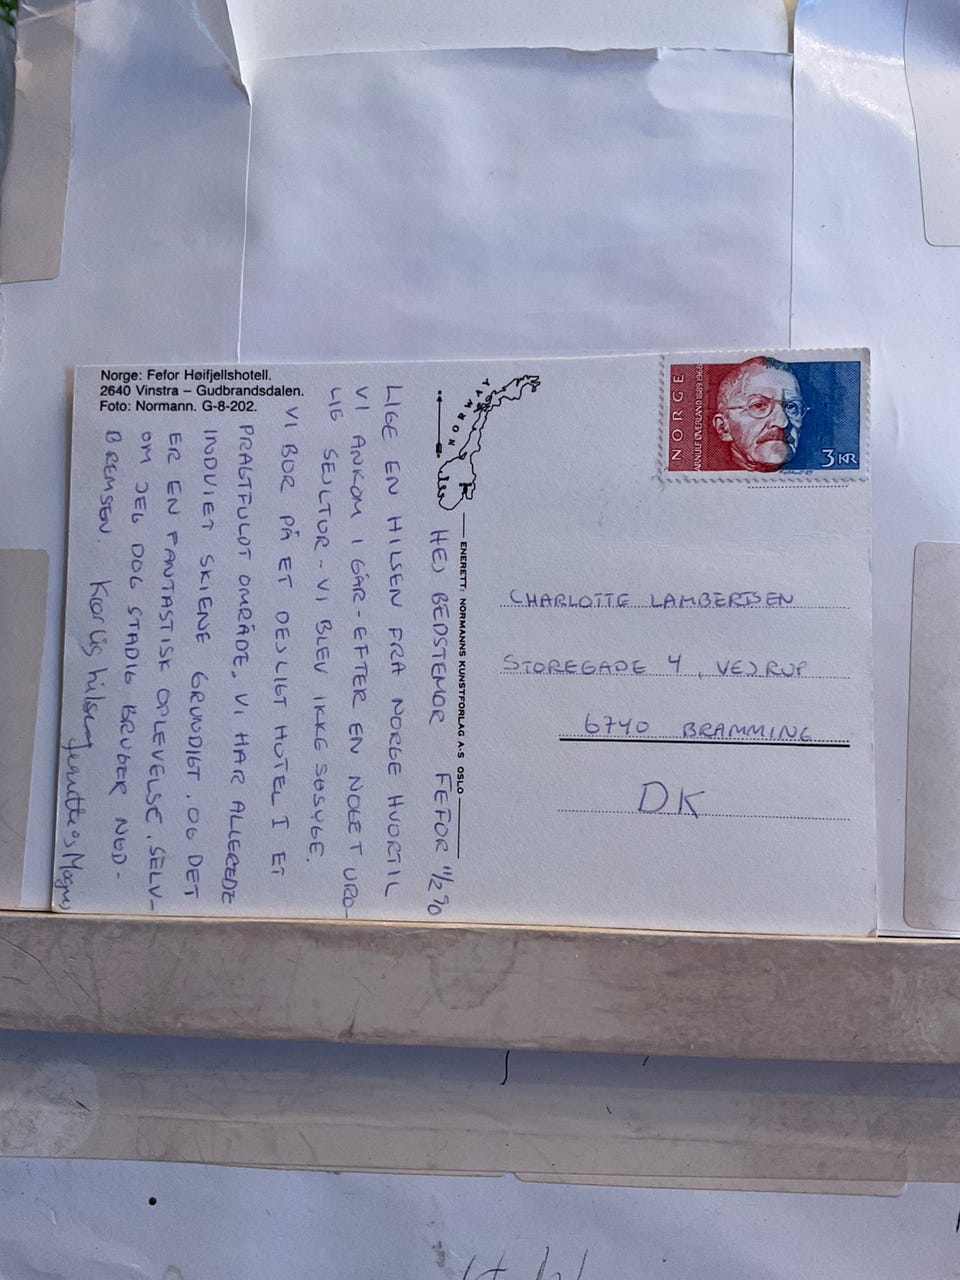 Norge: Fefor Høifjellshotell.
2640 Vinstra – Gudbrandsdalen.
Foto: Normann. G-8-202.
HEJ BEDSTEMOR FEFOR 11/2 90
LIGE EN HILSEN FRA NORGE HVORTIL
VI ANKOM I GÅR - EFTER EN NOGET URO-
LIG SEJLTUR - VI BLEV IKKE SØSYGE.
VI BOR PÅ ET DEJLIGT HOTEL I ET
PRAGTFULDT OMRÅDE. VI HAR ALLEREDE
INDVIET SKIENE GRUNDIGT. OG DET
ER EN FANTASTISK OPLEVELSE. SELV-
OM JEG DOG STADIG BRUGER NØD-
BREMSEN. Kærlig hilsen
Jeanette & Mogens
NORWAY
ENERETT: NORMANNS KUNSTFORLAG A·S OSLO
NORGE
ARNULF ØVERLAND 1889 1968
3 KR
CHARLOTTE LAMBERTSEN
STOREGADE 4, VEJRUP
6740 BRAMMING
DK